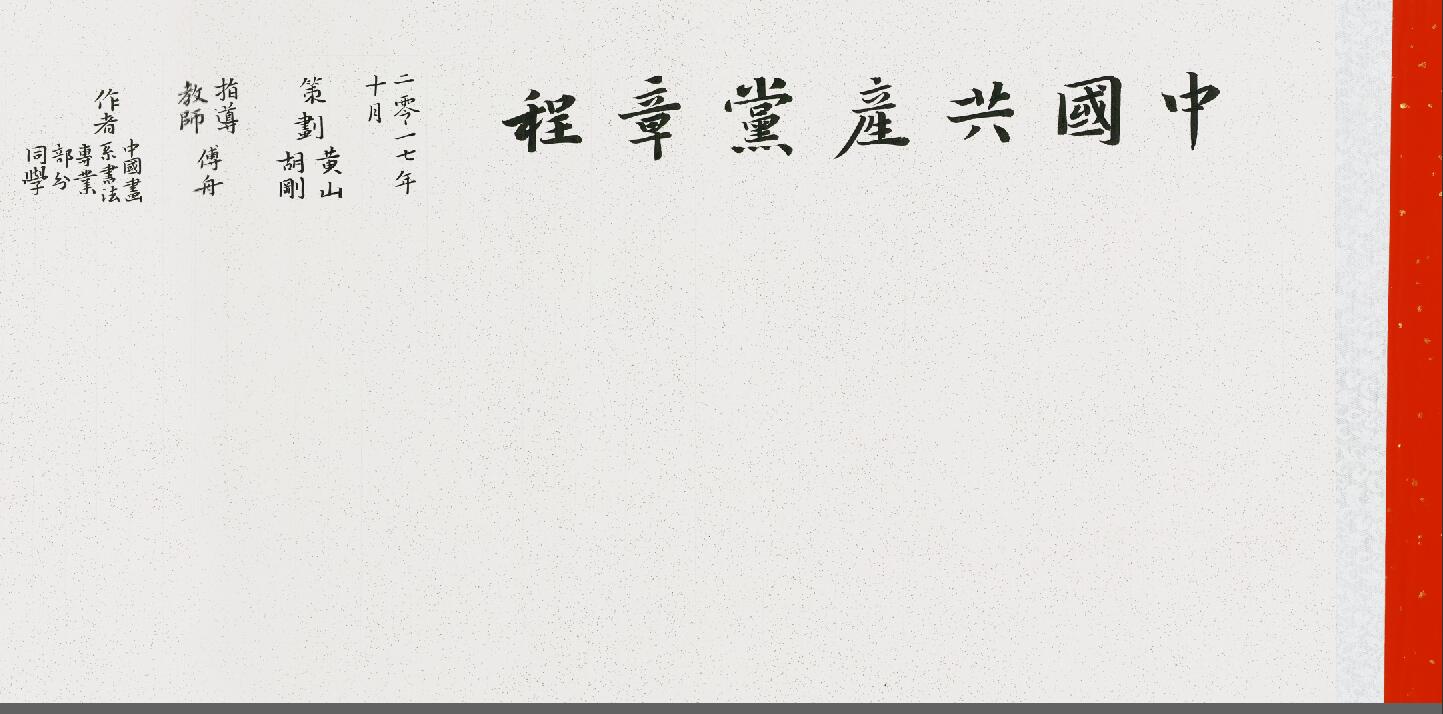 中國共產黨章程
二零一七年
十月
策劃
黃山
胡剛
指導
教師
傅舟
作者
中國畫
系書法
專業
部分
同學